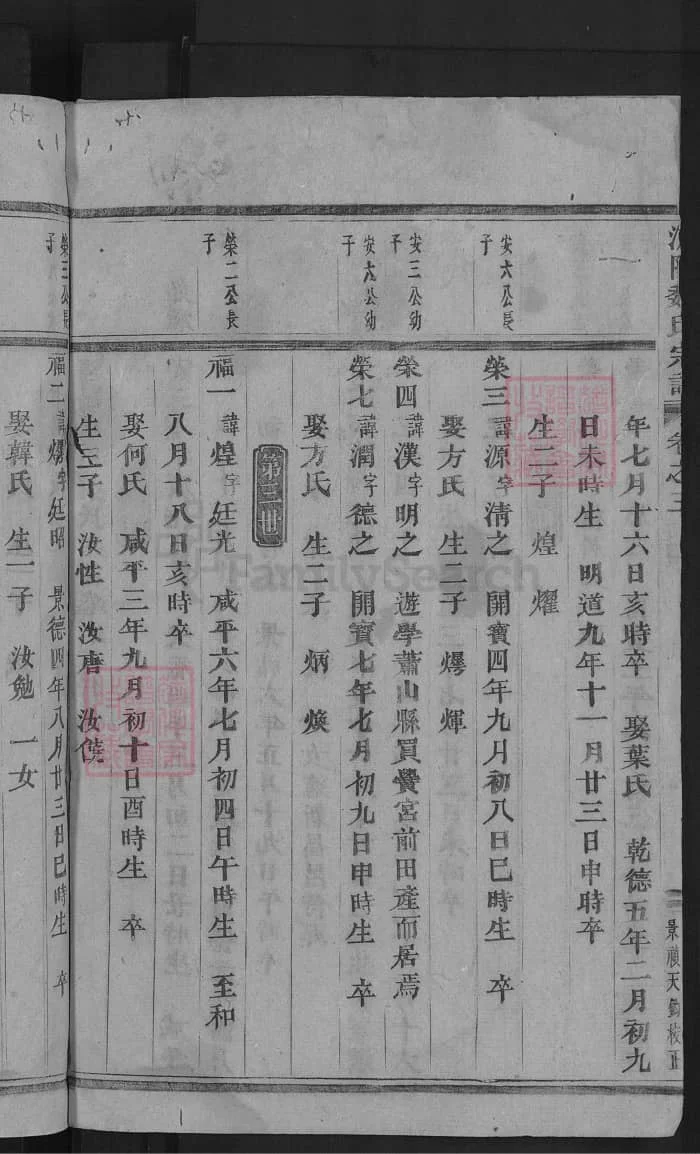 氏宗譜
卷之三
年七月十六日亥時卒 娶葉氏 乾德五年二月初九
日未時生 明道九年十一月廿三日申時卒
生二子 煌 燿
安六公長子
榮三 諱源字清之 開寶四年九月初八日巳時生 卒
娶方氏 生二子 爆 煇
安三公幼子
榮四 諱漢字明之 遊學蕭山縣買黌宮前田產而居焉
安六公幼子
榮七 諱潤字德之 開寶七年七月初九日申時生 卒
娶方氏 生二子 炳 煥
榮二公長子
福一 諱煌字廷光 咸平六年七月初四日午時生 至和
八月十八日亥時卒
娶何氏 咸平三年九月初十日酉時生 卒
生三子 汝性 汝齊 汝僥
榮三公長子
福二 諱爆字廷昭 景德四年八月廿三日巳時生 卒
娶韓氏 生一子 汝勉 一女
FamilySearch